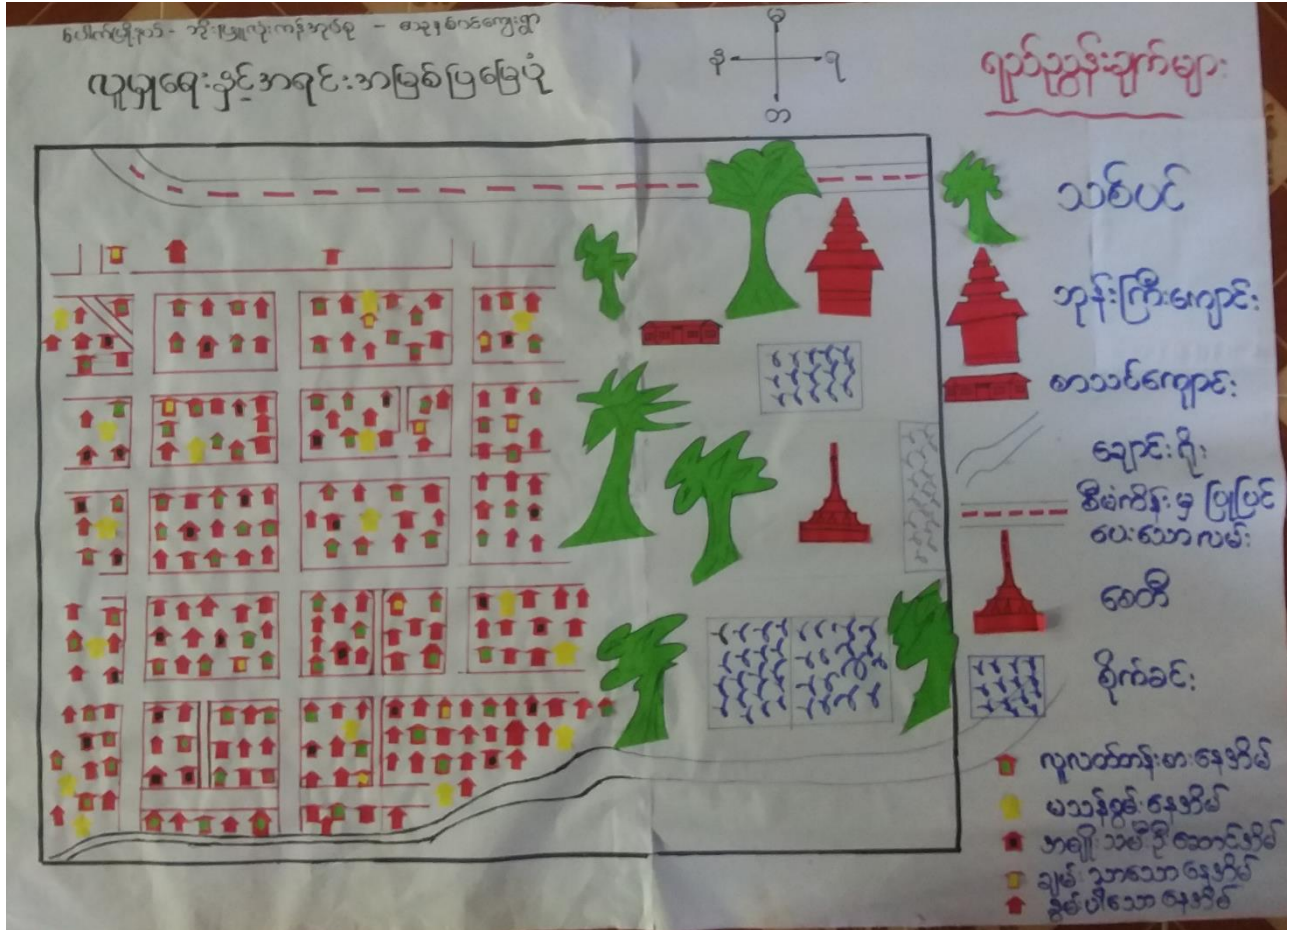 ပေါက်မြို့နယ် - ဘုံးဖြူလုံးကန်အုပ်စု - 
လူမှုရေးနှင့်အရင်းအမြစ်ပြမြေပုံ
မ
န
ရ
တ
ရည်ညွှန်းချက်များ
သစ်ပင်
ဘုန်းကြီးကျောင်း
စာသင်ကျောင်း
ချောင်းရိုး
စီမံကိန်းမှ ပြုပြင်
ပေးသောလမ်း
စေတီ
စိုက်ခင်း
လူလတ်တန်းစားနေအိမ်
မသန်စွမ်းနေအိမ်
အမျိုးသမီးဦးဆောင်အိမ်
ချမ်းသာသောနေအိမ်
နွမ်းပါးသောနေအိမ်